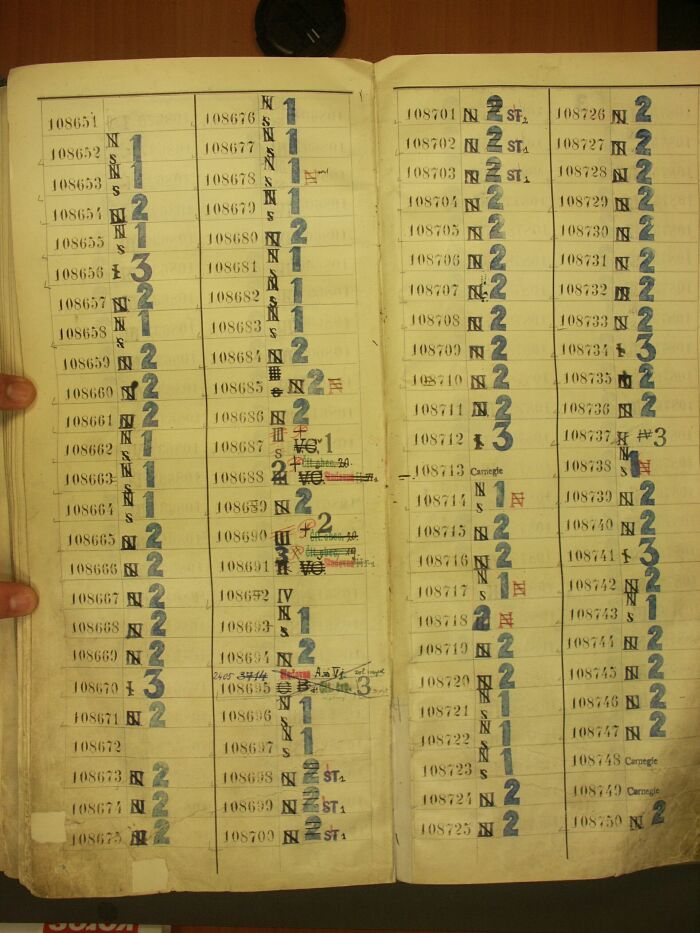 108651
108652 N s 1
108653 N s 1
108654 N 2
108655 N s 1
108656 I 3
108657 N 2
108658 N s 1
108659 N 2
108660 N 2
108661 N 2
108662 N s 1
108663 N s 1
108664 N s 1
108665 N 2
108666 N 2
108667 N 2
108668 N 2
108669 N 2
108670 I 3
108671 N 2
108672
108673 N 2
108674 N 2
108675 N 2
108676 N s 1
108677 N s 1
108678 N s 1 N
108679 N s 1
108680 N 2
108681 N s 1
108682 N s 1
108683 N s 1
108684 N 2
108685 N 2 N
108686 N 2
108687 III s VC 1
108688 2 VC
108689 N 2
108690 III +2
108691 3 VC
108692 IV
108693 N s 1
108694 N 2
2405 3714
108695 3
108696 N s 1
108697 N s 1
108698 N 2 ST1
108699 N 2 ST1
108700 N 2 ST1
108701 N 2 ST2
108702 N 2 ST1
108703 N 2 ST1
108704 N 2
108705 N 2
108706 N 2
108707 N 2
108708 N 2
108709 N 2
108710 N 2
108711 N 2
108712 I 3
108713 Carnegie
108714 N s 1 N
108715 N 2
108716 N 2
108717 N s 1 N
108718 2 N
108719 N 2
108720 N 2
108721 N s 1
108722 N s 1
108723 N s 1
108724 N 2
108725 N 2
108726 N 2
108727 N 2
108728 N 2
108729 N 2
108730 N 2
108731 N 2
108732 N 2
108733 N 2
108734 I 3
108735 2
108736 N 2
108737 N IV 3
108738 N s 1 N
108739 N 2
108740 N 2
108741 I 3
108742 N 2
108743 N s 1
108744 N 2
108745 N 2
108746 N 2
108747 N 2
108748 Carnegie
108749 Carnegie
108750 N 2